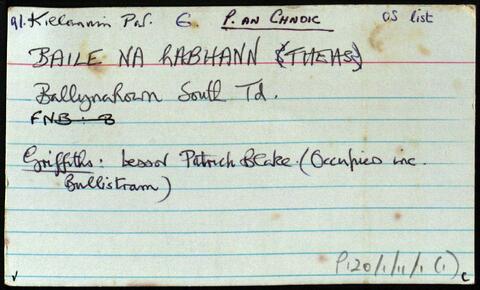 91. Killannin Par. G P. AN CHNOIC OS list
BAILE NA hABHANN {THEAS}
Ballynahown South Td.
FNB. B
Griffiths: Lessor Patrick Blake. (Occupies inc.
Bullistram)
P120/1/11/1 (1)